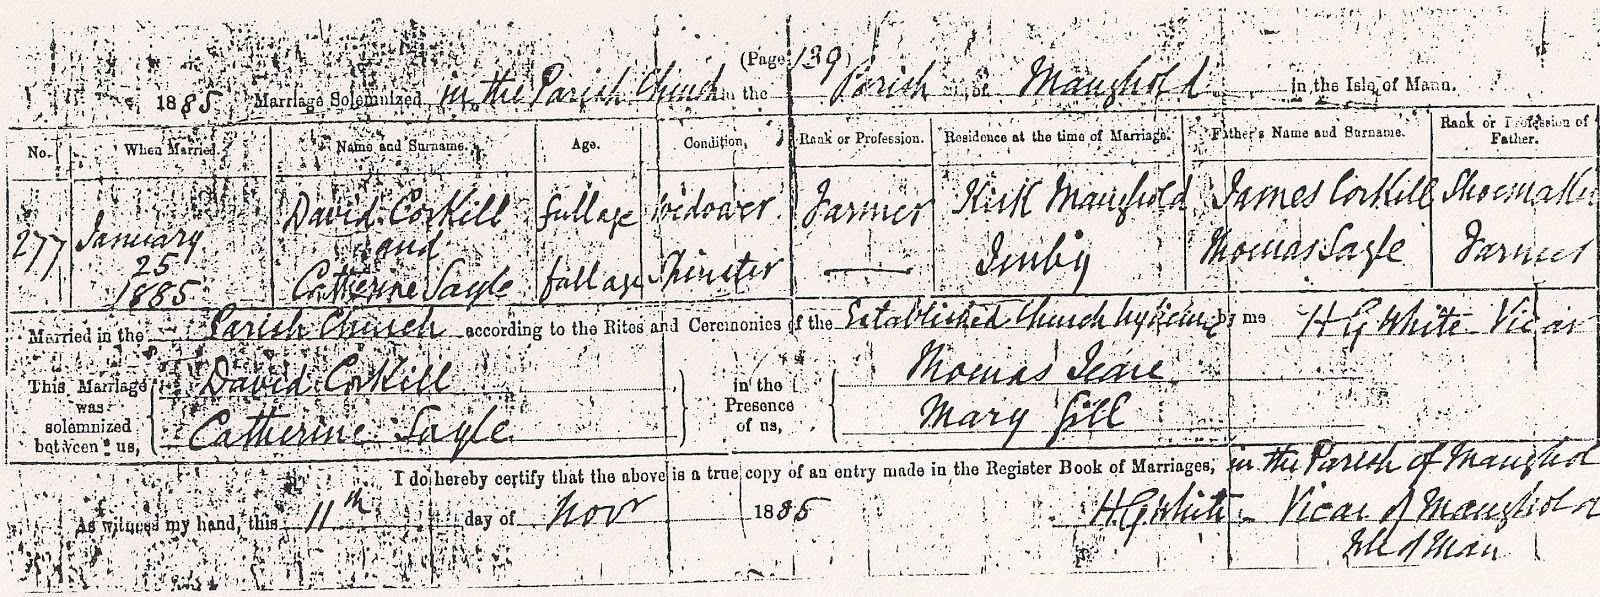 (Page 139)
1885 Marriage Solemnized in the Parish Church in the Parish of Maughold in the Isle of Mann.
No. When Married. Name and Surname. Age. Condition. Rank or Profession. Residence at the time of Marriage. Father's Name and Surname. Rank or Profession of Father.
277 January 25 1885 David Corkill and Catherine Sayle full age full age Widower Spinster Farmer — Kirk Maughold James Corkill Thomas Sayle Shoemaker Farmer
Married in the Parish Church according to the Rites and Ceremonies of the Established Church by me H G White Vicar
This Marriage was solemnized between us, David Corkill
Catherine Sayle
in the Presence of us, Thomas
Mary Gill
I do hereby certify that the above is a true copy of an entry made in the Register Book of Marriages, in the Parish of Maughold
As witness my hand, this 11th day of Novr 1885 H. G White Vicar of Maughold
Isle of Man